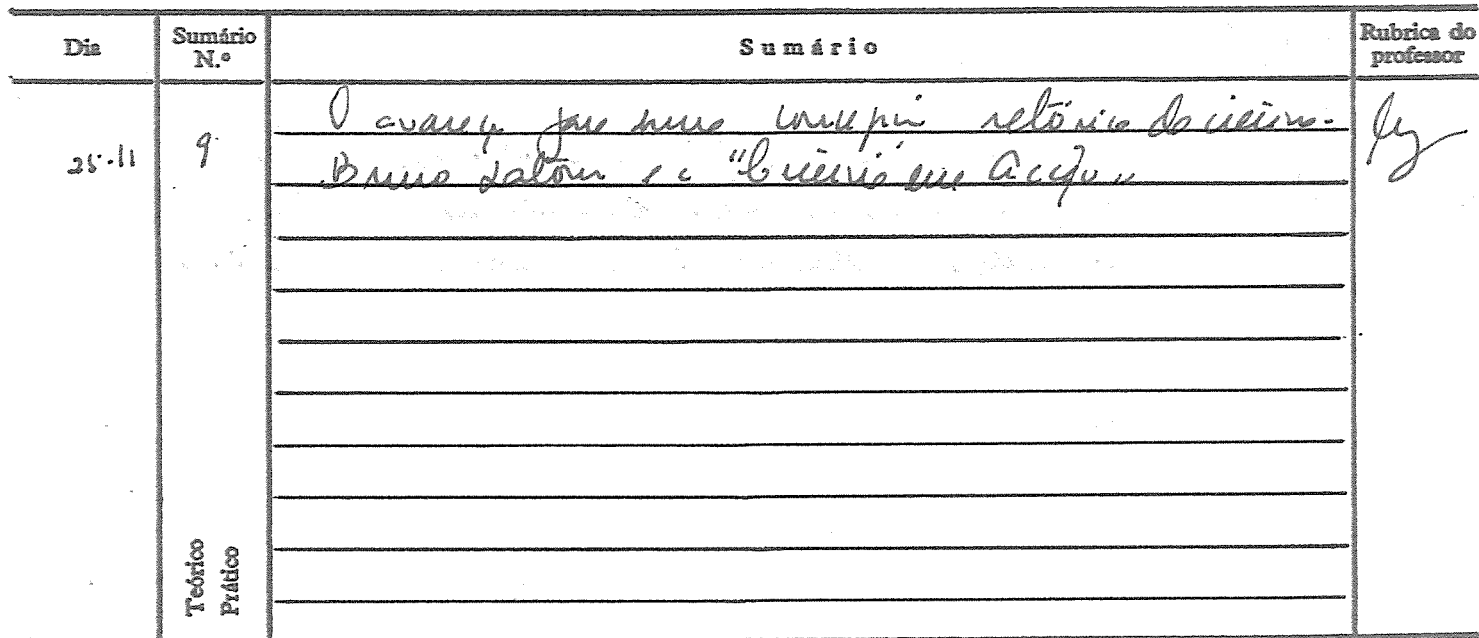 Dia
Sumário N.º
Sumário
Rubrica do professor
25.11
9
O avanço para uma concepção retórica da ciência.
Bruno Latour e a "Ciência em Acção"
Teórico
Prático